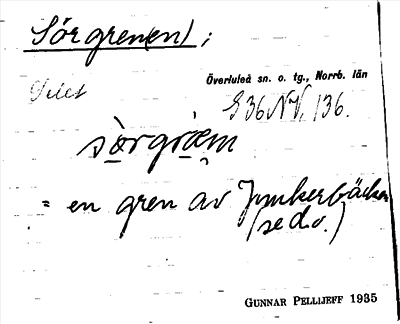 Sörgren(en);
Överluleå sn. o. tg., Norrb. län
G 36 NV, 136.
sörgræm
= en gren av Junkerbäcken
(se d.o.)
GUNNAR PELLIJEFF 1935